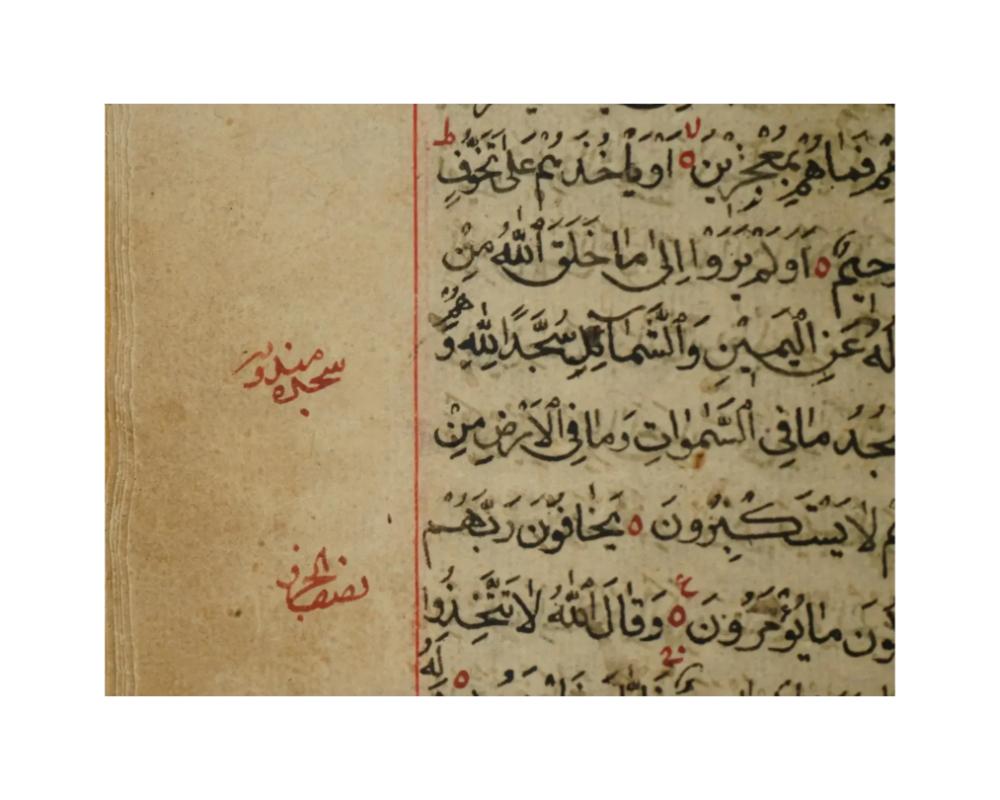 هُمْ فَمَا هُمْ بِمُعْجِزِينَ ۝ اَوْ يَاْخُذَهُمْ عَلٰى تَخَوُّفٍ ط
حِيمٌ ۝ اَوَلَمْ يَرَوْا اِلٰى مَا خَلَقَ اللّٰهُ مِنْ
لُهُ عَنِ الْيَمِينِ وَالشَّمَائِلِ سُجَّدًا لِلّٰهِ وَهُمْ
سْجُدُ مَا فِي السَّمٰوَاتِ وَمَا فِي الْاَرْضِ مِنْ
مْ لَا يَسْتَكْبِرُونَ ۝ يَخَافُونَ رَبَّهُمْ
لُونَ مَا يُؤْمَرُونَ ۝ ع وَقَالَ اللّٰهُ لَا تَتَّخِذُوا
سجده مندوبه
نصف الجزء